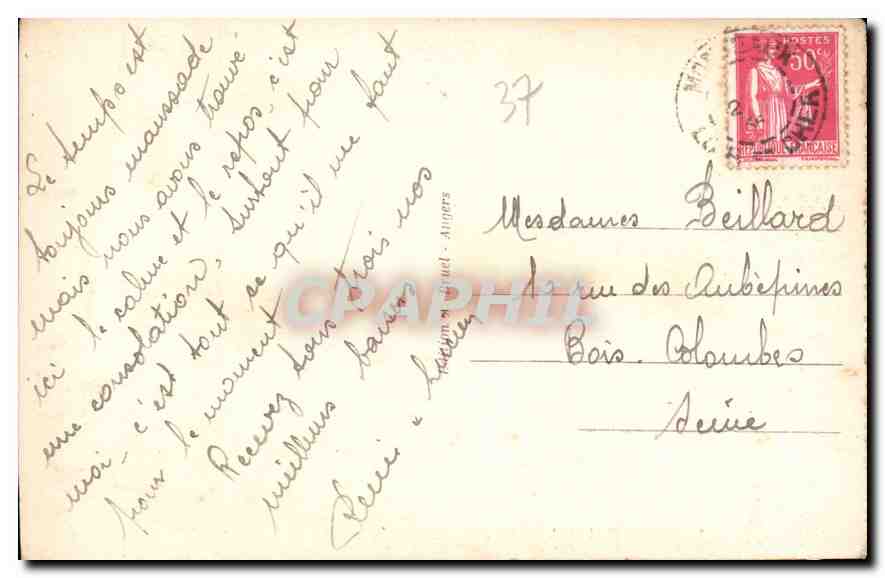 Le temps est
toujours maussade
mais nous avons trouvé
ici le calme et le repos, c'est
une consolation, surtout pour
moi - c'est tout ce qu'il me faut
pour le moment
Recevez tous trois nos
meilleurs baisers
37
POSTES
50c.
REPUBLIQUE FRANCAISE
CHER
Angers
CPAPHIL
Mesdames Beillard
rue des Aubépines
Bois-Colombes
Seine